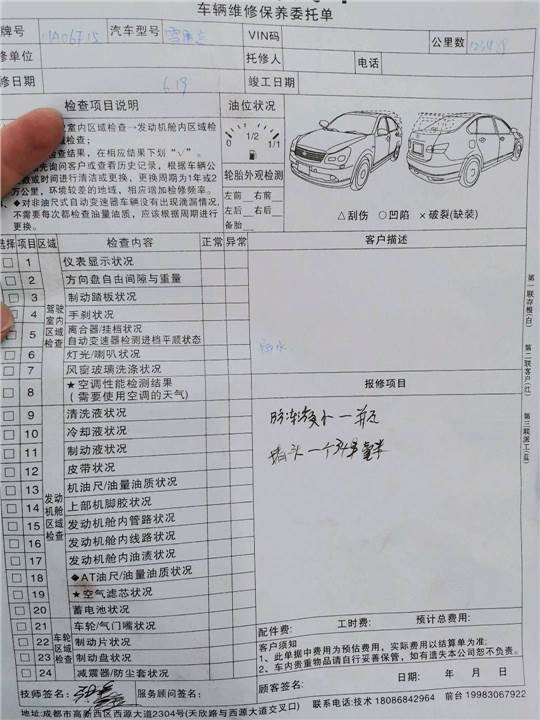 车辆维修保养委托单
牌号 汽车型号 雪佛兰 VIN码 公里数
修单位 托修人 电话
修日期 6.19 竣工日期
检查项目说明
室内区域检查→发动机舱内区域检
检查；
查结果，在相应结果下划“√”。
先询问客户或查看历史记录，根据车辆公
或时间进行清洁或更换，更换周期为1年或2
万公里，环境较差的地域，相应增加检修频率。
◆对非油尺式自动变速器车辆没有出现泄漏情况，
不需要每次都检查油量油质，应该根据周期进行
更换。
油位状况
0 1/2 1
1/1
轮胎外观检测
左前 右前
左后 右后
备胎
△刮伤 ○凹陷 ×破裂(缺装)
选择 项目 区域 检查内容 正常 异常
驾驶室内区域检查
1 仪表显示状况
2 方向盘自由间隙与重量
3 制动踏板状况
4 手刹状况
5 离合器/挂档状况
自动变速器检测进档平顺状态
6 灯光/喇叭状况
7 风窗玻璃洗涤状况
8 ★空调性能检测结果
（需要使用空调的天气）
发动机舱区域检查
9 清洗液状况
10 冷却液状况
11 制动液状况
12 皮带状况
13 机油尺/油量油质状况
14 上部机脚胶状况
15 发动机舱内管路状况
16 发动机舱内线路状况
17 发动机舱内油渍状况
18 ◆AT油尺/油量油质状况
19 ★空气滤芯状况
20 蓄电池状况
车轮区域检查
21 车轮/气门嘴状况
22 制动片状况
23 制动盘状况
24 减震器/防尘套状况
客户描述
报修项目
防冻液 一瓶
堵头一个
第一联存根(白)
第二联客户(红)
第三联派工(蓝)
配件费: 工时费: 预计总费用:
客户须知
1、此单据中费用为预估费用，实际费用以结算单为准:
2、车内贵重物品请自行妥善保管，如有遗失本公司恕不负责。
日期: 年 月 日
技师签名: 服务顾问签名: 顾客签名:
地址:成都市高新西区西源大道2304号(天欣路与西源大道交叉口) 联系电话:技术 18086842964 前台 19983067922